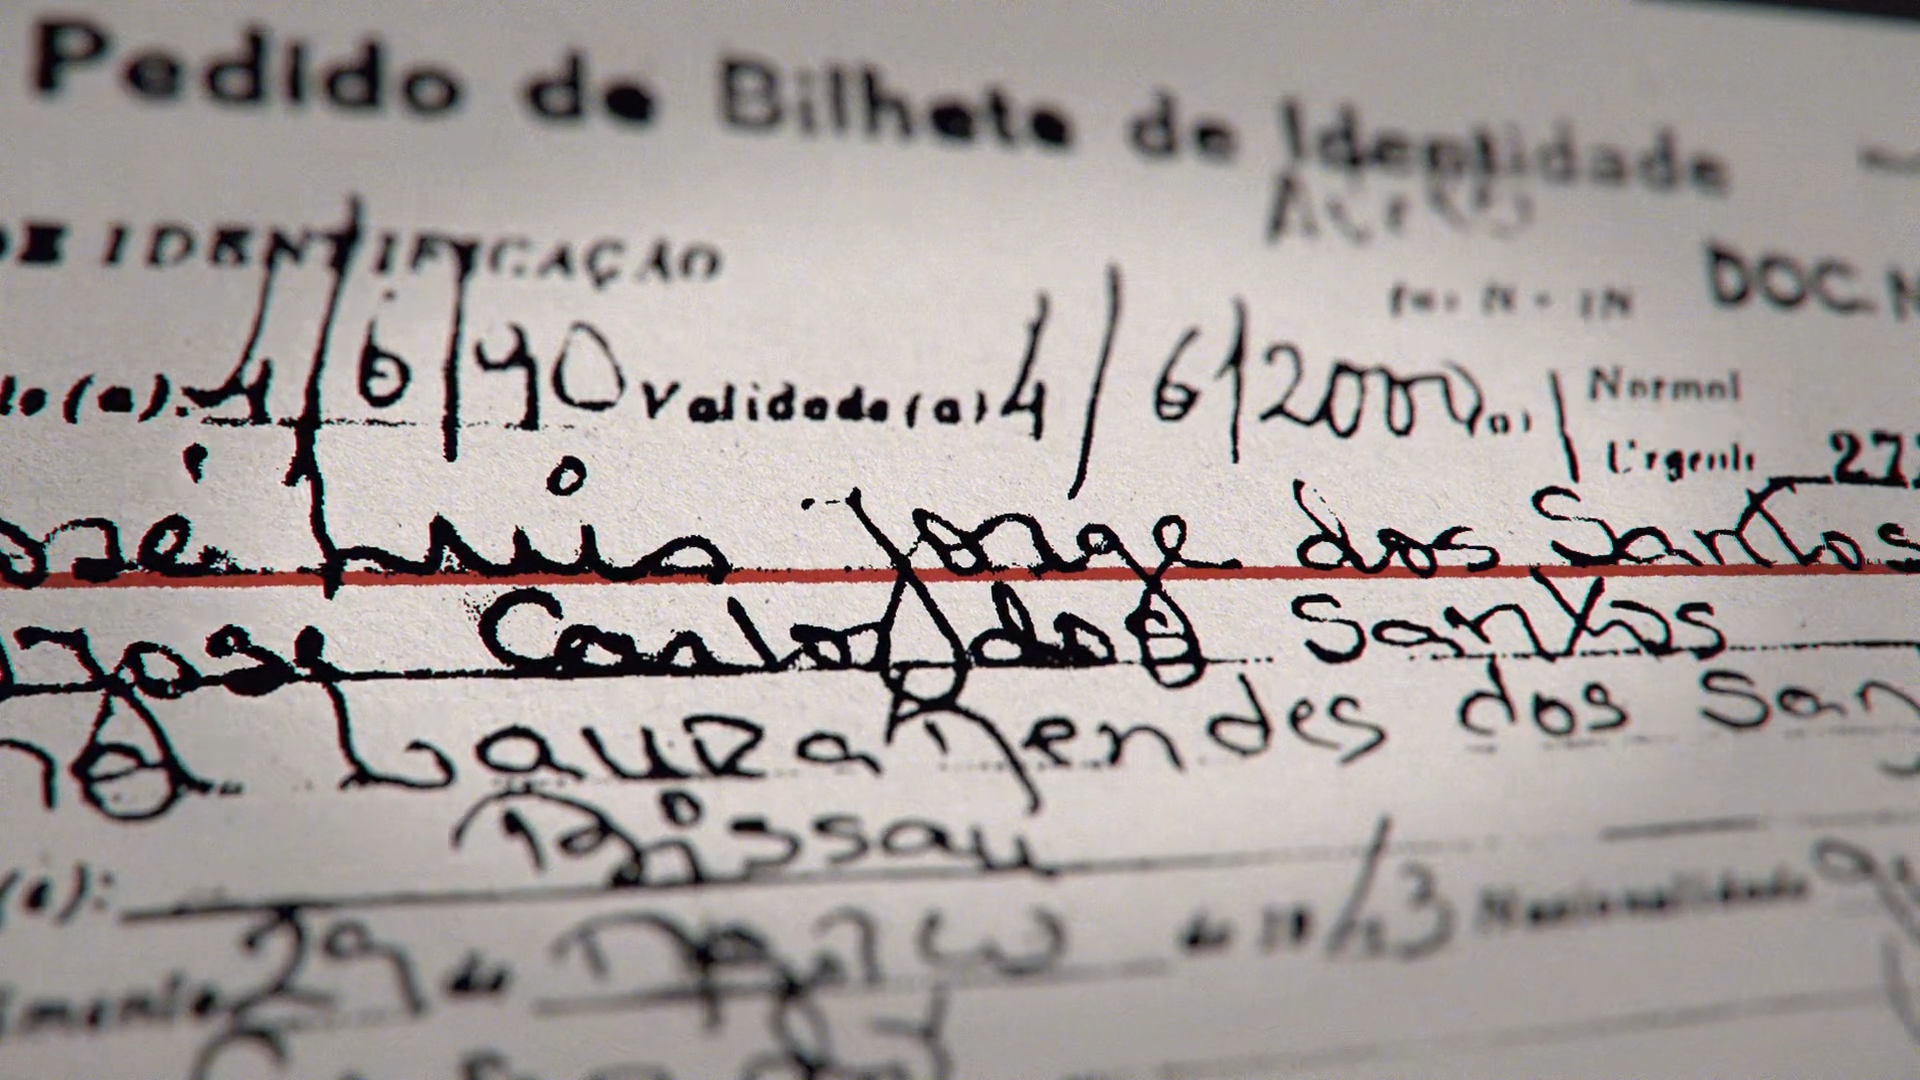 Pedido de Bilhete de Identidade
DE IDENTIFICAÇÃO
DOC. N
(a): 4/6/90 Validade (a) 4/6/2000 Normal
Urgente 27
José Luis Jorge dos Santos
José Carlos dos Santos
Laura Mendes dos San
Bissau
(é):
29 de Março de 19 Nacionalidade